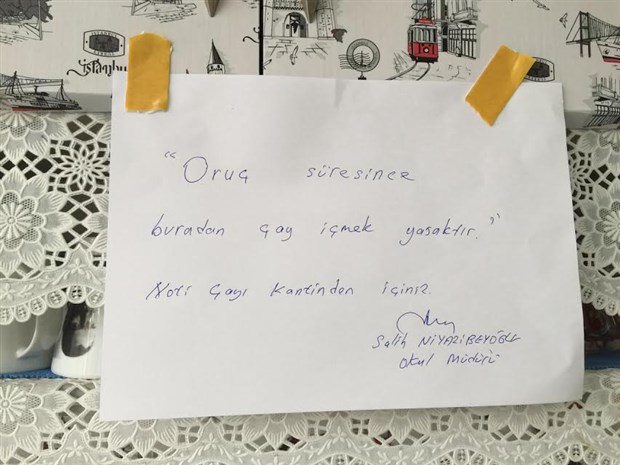 istanbul
"Oruç süresince
buradan çay içmek yasaktır."
Not: Çayı kantinden içiniz.
Salih NİYAZİBEYOĞLU
Okul Müdürü